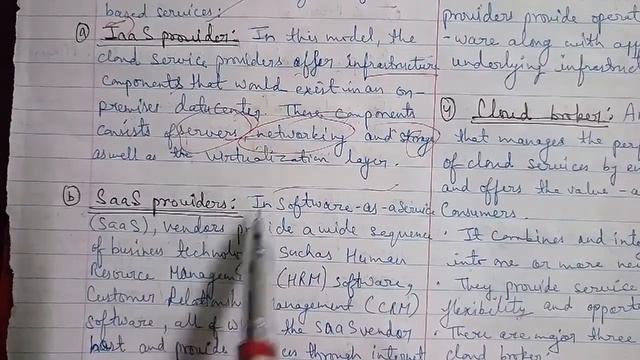 based services:
(a) IaaS provider: In this model, the
cloud service providers offer infrastructure
components that would exist in an on-
premises datacenter. These components
consists of servers, networking and storage
aswell as the virtualization layer.
(b) SaaS providers: In Software-as-a Service
(SaaS), vendors provide a wide sequence
of business technolo suchas Human
Resource Manageme (HRM) software,
Customer Relationsh anagement (CRM)
software, all of w the SAAS vendor
host and provide ces through internet
providers provide operat
-ware along with app
underlying infrastruct
4) Cloud broker: A
that manages the per
of cloud services by e
and offers the value-a
Consumers.
· It combines and int
into one or more ne
· They provide service
flexibility and opport
There are major three
cloud broker